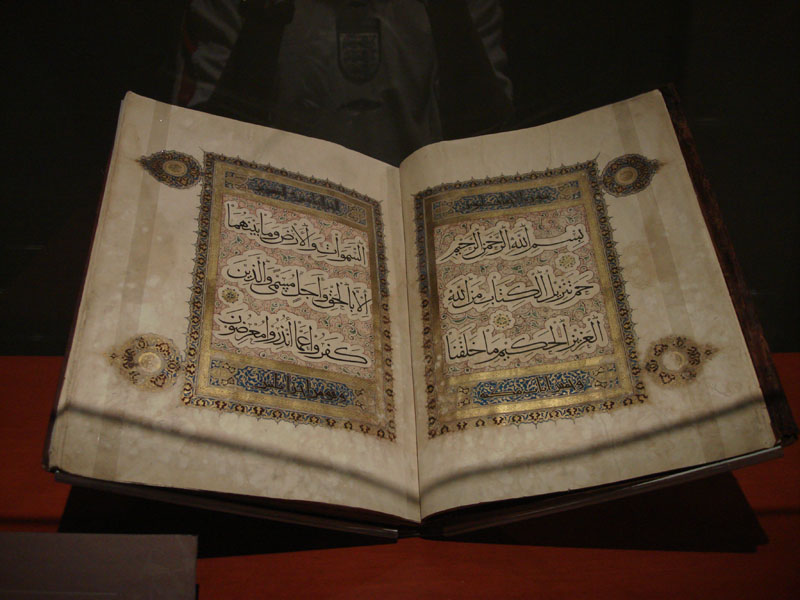 بسم الله الرحمن الرحيم
حم تنزيل الكتاب من الله
العزيز الحكيم ما خلقنا
السموات والأرض وما بينهما
إلا بالحق وأجل مسمى والذين
كفروا عما أنذروا معرضون